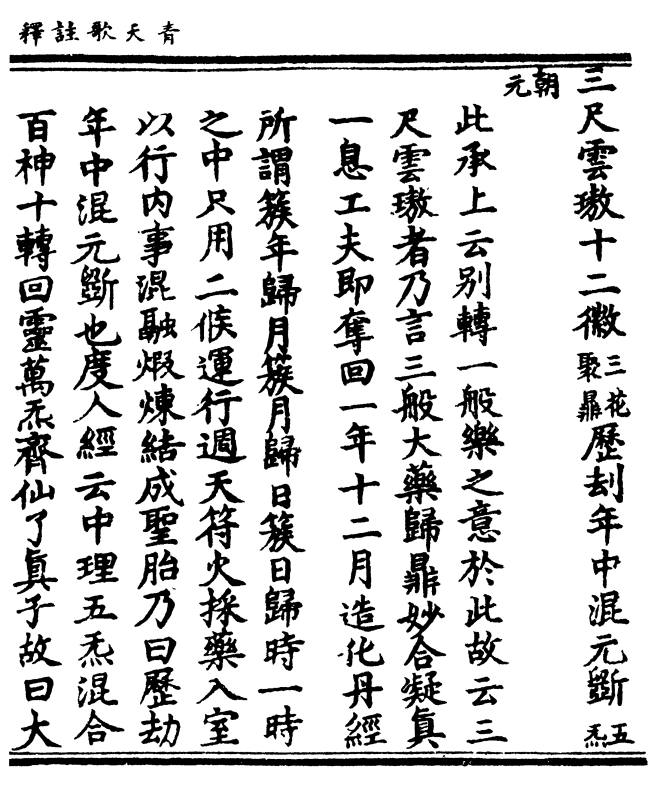 青天歌註釋
三尺雲璈十二徽三花聚鼎歷刦年中混元斵五炁
朝元
此承上云别轉一般樂之意於此故云三
尺雲璈者乃言三般大藥歸鼎妙合凝眞
一息工夫即奪回一年十二月造化丹經
所謂簇年歸月簇月歸日簇日歸時一時
之中只用二候運行週天符火採藥入室
以行内事混融煆煉結成聖胎乃曰歷劫
年中混元斵也度人經云中理五炁混合
百神十轉回靈萬炁齊仙了眞子故曰大